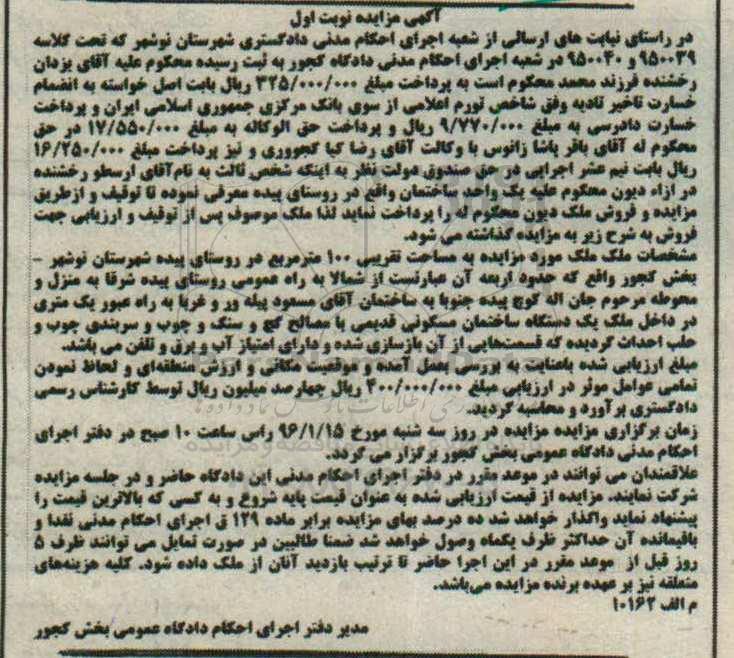 آگهی مزایده نوبت اول
در راستای نیابت های ارسالی از شعبه اجرای احکام مدنی دادگستری شهرستان نوشهر که تحت کلاسه
۹۵۰۰۳۹ و ۹۵۰۰۴۰ در شعبه اجرای احکام مدنی دادگاه کجور به ثبت رسیده محکوم علیه آقای یزدان
رخشنده فرزند محمد محکوم است به پرداخت مبلغ ۳۲۵/۰۰۰/۰۰۰ ریال بابت اصل خواسته به انضمام
خسارت تاخیر تادیه وفق شاخص تورم اعلامی از سوی بانک مرکزی جمهوری اسلامی ایران و پرداخت
خسارت دادرسی به مبلغ ۹/۷۷۰/۰۰۰ ریال و پرداخت حق الوکاله به مبلغ ۱۷/۵۵۰/۰۰۰ در حق
محکوم له آقای باقر پاشا زانوس با وکالت آقای رضا کیا کجووری و نیز پرداخت مبلغ ۱۶/۲۵۰/۰۰۰
ریال بابت نیم عشر اجرایی در حق صندوق دولت نظر به اینکه شخص ثالث به نام‌آقای ارسطو رخشنده
در ازاء دیون محکوم علیه یک واحد ساختمان واقع در روستای پیده معرفی نموده تا توقیف و ازطریق
مزایده و فروش ملک دیون محکوم له را پرداخت نماید لذا ملک موصوف پس از توقیف و ارزیابی جهت
فروش به شرح زیر به مزایده گذاشته می شود.
مشخصات ملک ملک مورد مزایده به مساحت تقریبی ۱۰۰ مترمربع در روستای پیده شهرستان نوشهر –
بخش کجور واقع که حدود اربعه آن عبارتست از شمالا به راه عمومی روستای پیده شرقا به منزل و
محوطه مرحوم جان اله کوچ پیده جنوبا به ساختمان آقای مسعود پیله ور و غربا به راه عبور یک متری
در داخل ملک یک دستگاه ساختمان مسکونی قدیمی با مصالح گچ و سنگ و چوب و سربندی چوب و
حلب احداث گردیده که قسمت‌هایی از آن بازسازی شده و دارای امتیاز آب و برق و تلفن می باشد.
مبلغ ارزیابی شده باعنایت به بررسی بعمل آمده و موقعیت مکانی و ارزش منطقه‌ای و لحاظ نمودن
تمامی عوامل موثر در ارزیابی مبلغ ۴۰۰/۰۰۰/۰۰۰ ریال چهارصد میلیون ریال توسط کارشناس رسمی
دادگستری برآورد و محاسبه گردید.
زمان برگزاری مزایده مزایده در روز سه شنبه مورخ ۹۶/۱/۱۵ راس ساعت ۱۰ صبح در دفتر اجرای
احکام مدنی دادگاه عمومی بخش کجور برگزار می گردد.
علاقمندان می توانند در موعد مقرر در دفتر اجرای احکام مدنی این دادگاه حاضر و در جلسه مزایده
شرکت نمایند. مزایده از قیمت ارزیابی شده به عنوان قیمت پایه شروع و به کسی که بالاترین قیمت را
پیشنهاد نماید واگذار خواهد شد ده درصد بهای مزایده برابر ماده ۱۲۹ ق اجرای احکام مدنی نقدا و
باقیمانده آن حداکثر ظرف یکماه وصول خواهد شد ضمنا طالبین در صورت تمایل می توانند ظرف ۵
روز قبل از موعد مقرر در این اجرا حاضر تا ترتیب بازدید آنان از ملک داده شود. کلیه هزینه‌های
متعلقه نیز بر عهده برنده مزایده می‌باشد.
م الف ۱۰۱۶۲
مدیر دفتر اجرای احکام دادگاه عمومی بخش کجور